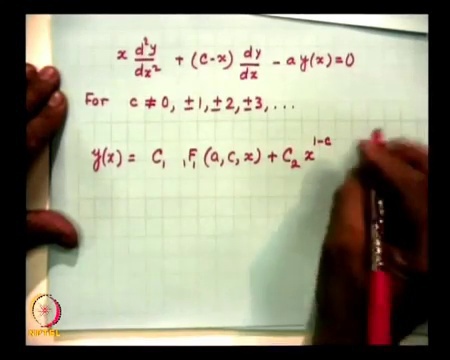 x d²y/dx² + (c-x) dy/dx - a y(x) = 0
For c ≠ 0, ±1, ±2, ±3, ...
y(x) = C₁ ₁F₁ (a, c, x) + C₂ x^{1-c}
NPTEL